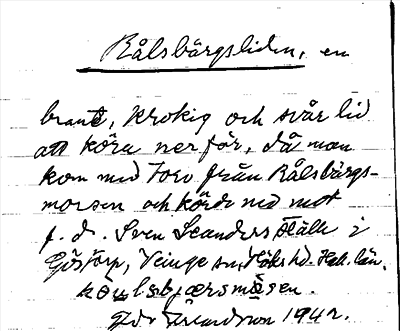 Rålsbärgsliden, en
brant, krokig och svår lid
att köra nerför, då man
kom med torv från Rålsbärgs-
mosen och körde ned mot
f. d. Sven Leanders ställe i
Göstorp, Veinge sn, Höks hd. Hall. län.
1942.